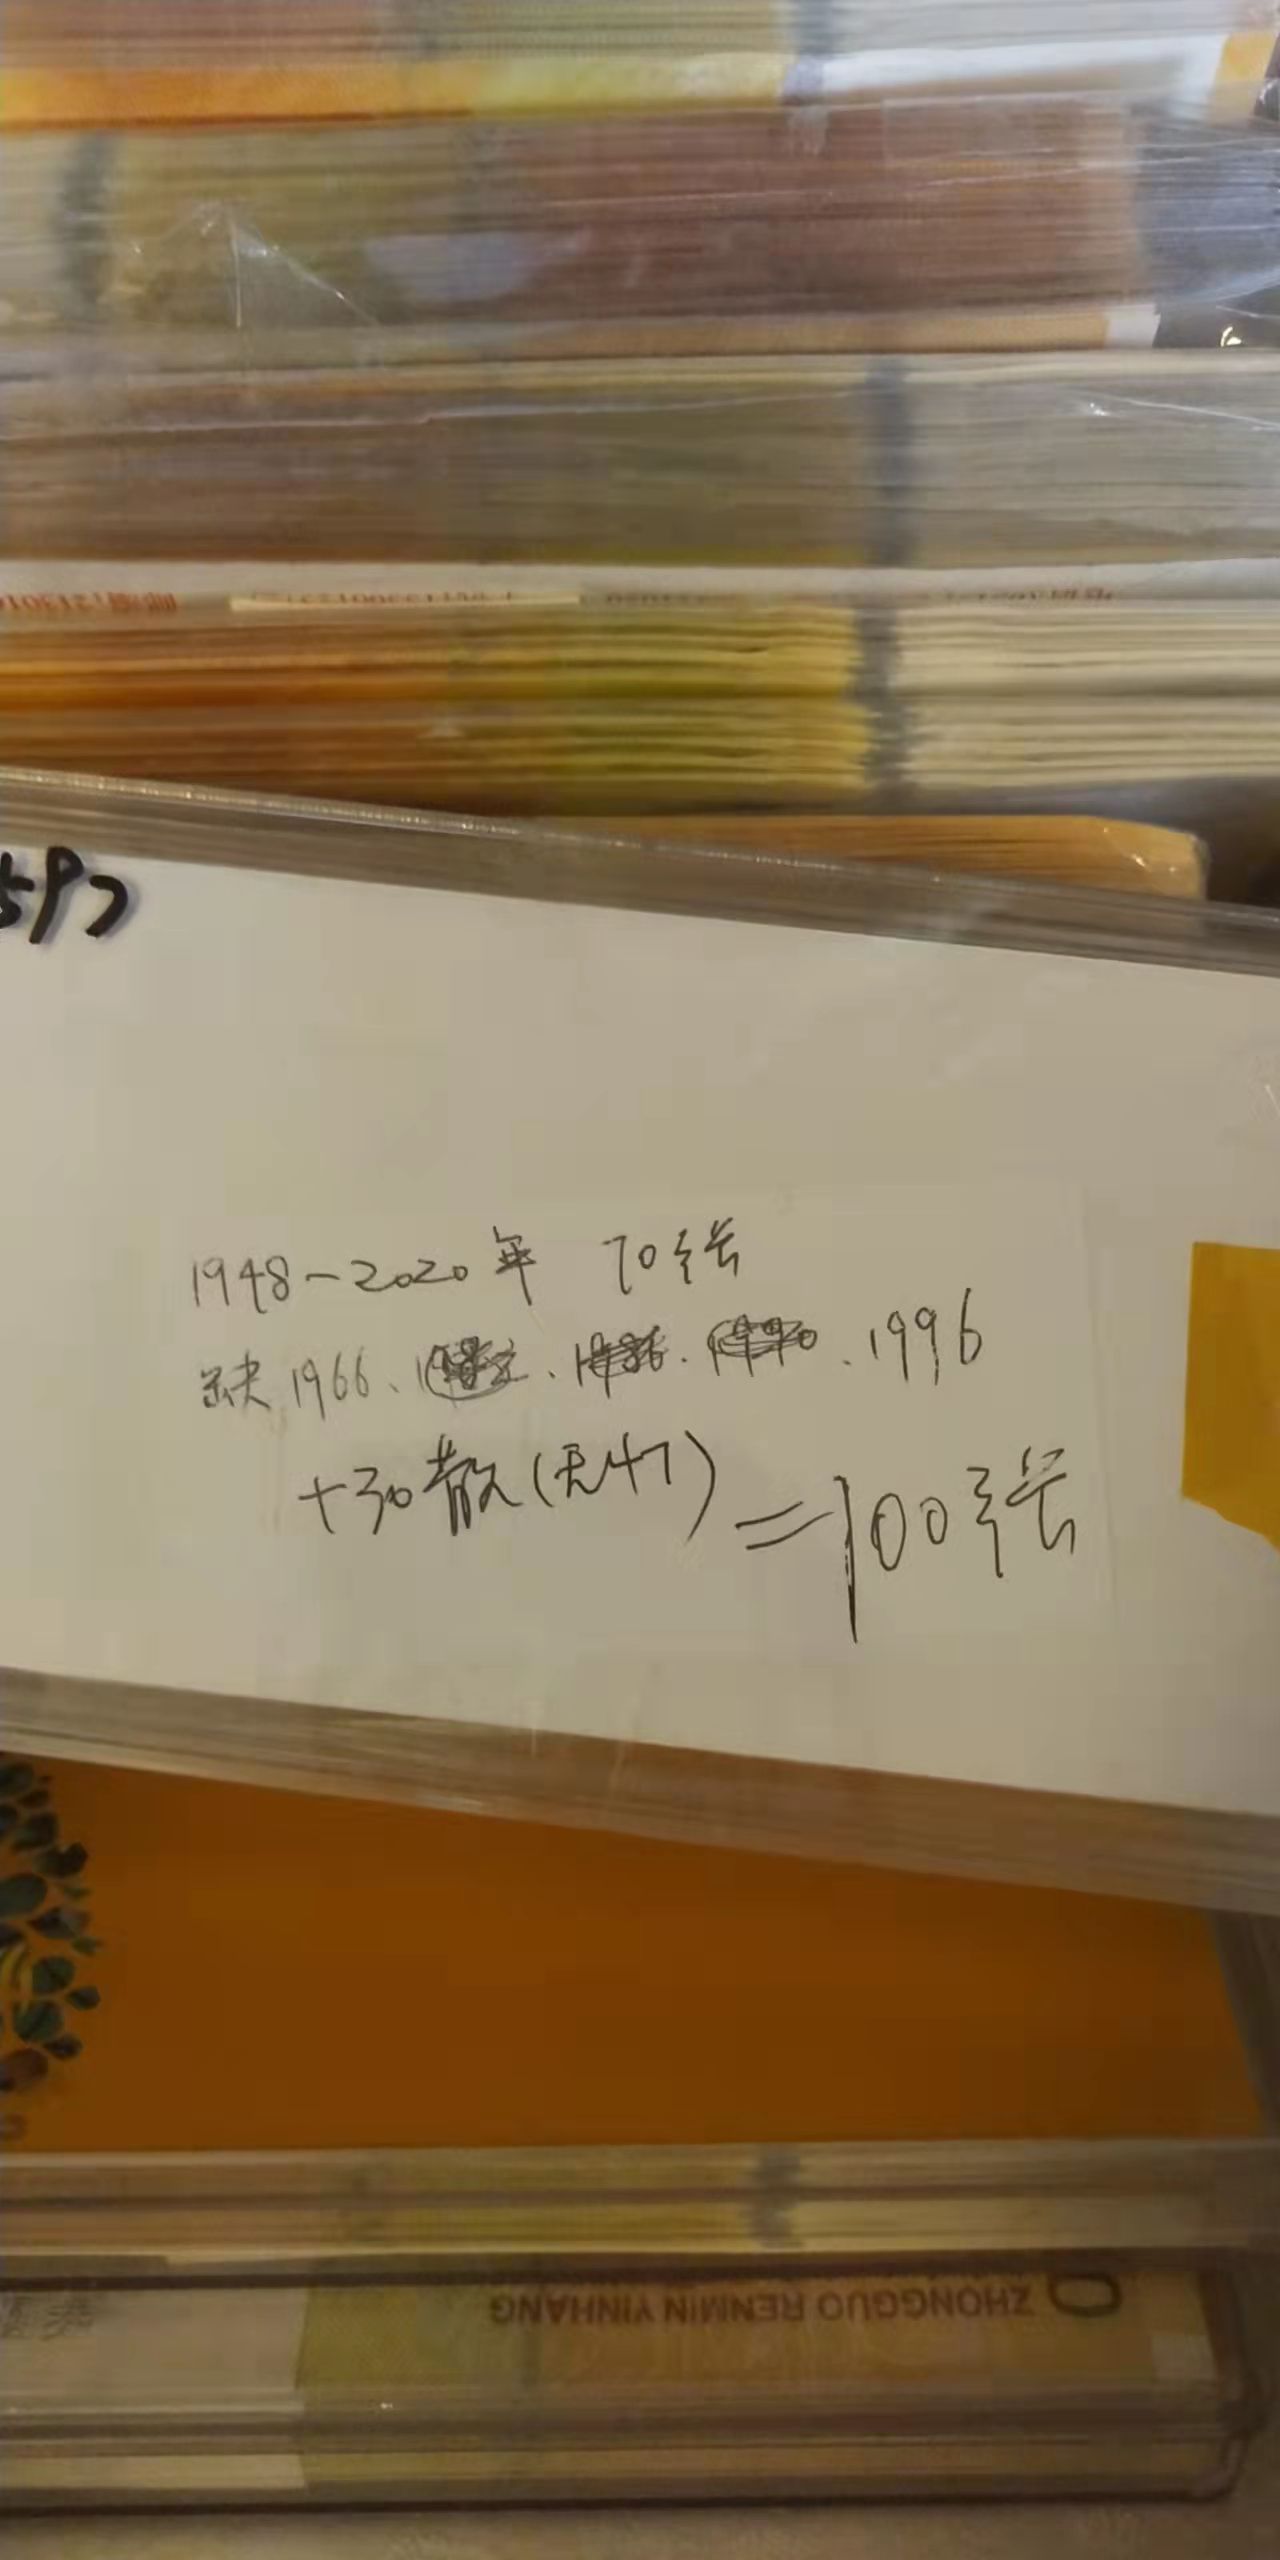 1948-2020年 70张
缺1966、1996
+30散(无47)=100张
ZHONGGUO RENMIN YINHANG